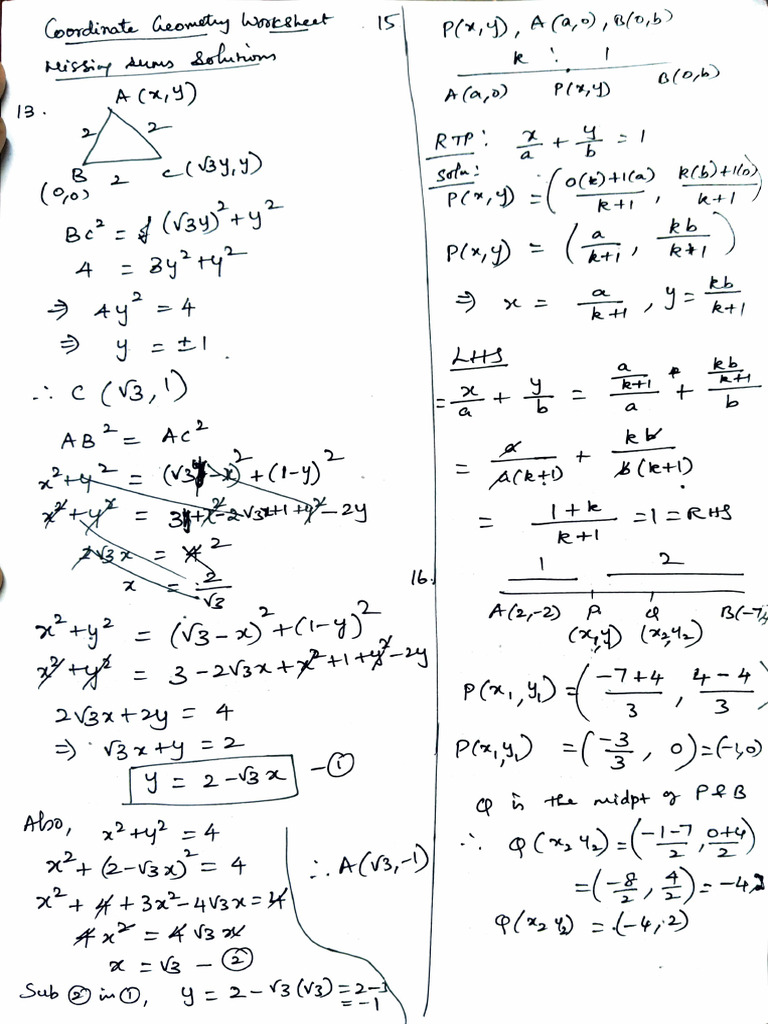 Coordinate Geometry Worksheet
Missing sums Solutions
13.
A (x, y)
2 2
B 2 C (√3y, y)
(0,0)
BC² = (√3y)² + y²
4 = 3y² + y²
⇒ 4y² = 4
⇒ y = ±1.
∴ C (√3, 1)
AB² = AC²
x² + y² = (√3 - x)² + (1-y)²
x² + y² = 3 + x² - 2√3x + 1 + y² - 2y
2√3x = 4 2
x = 2/√3
x² + y² = (√3 - x)² + (1-y)²
x² + y² = 3 - 2√3x + x² + 1 + y² - 2y
2√3x + 2y = 4
⇒ √3x + y = 2
y = 2 - √3x - ①
Also, x² + y² = 4
x² + (2-√3x)² = 4
x² + 4 + 3x² - 4√3x = 4
4x² = 4√3x
x = √3 - ②
Sub ② in ①, y = 2 - √3(√3) = 2-3
= -1
∴ A(√3, -1)
15 P(x,y), A(a,0), B(0,b)
k : 1
A(a,0) P(x,y) B(0,b)
RTP: x/a + y/b = 1
Soln:
P(x,y) = (0(k)+1(a)/k+1, k(b)+1(0)/k+1)
P(x,y) = (a/k+1, kb/k+1)
⇒ x = a/k+1, y = kb/k+1
LHS
= x/a + y/b = a/k+1/a + kb/k+1/b
= a/a(k+1) + kb/b(k+1)
= 1+k/k+1 = 1 = RHS
16. 1 2
A(2,-2) P Q B(-7,
(x,y) (x₂y₂)
P(x₁,y₁) = (-7+4/3, 4-4/3)
P(x₁y₁) = (-3/3, 0) = (-1,0)
Q is the midpt of P & B
∴ Q(x₂y₂) = (-1-7/2, 0+4/2)
= (-8/2, 4/2) = -4,2
Q(x₂y₂) = (-4,2)